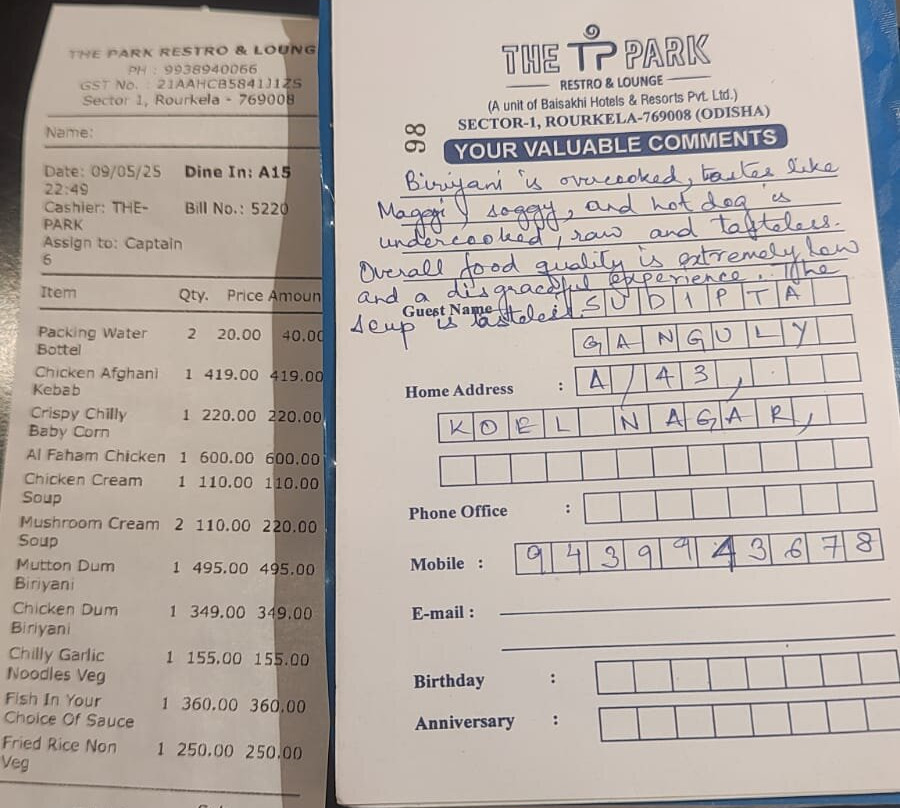 THE PARK RESTRO & LOUNG
PH : 9938940066
GST No. : 21AAHCB5841J1ZS
Sector 1, Rourkela - 769008
Name:
Date: 09/05/25 Dine In: A15
22:49
Cashier: THE- Bill No.: 5220
PARK
Assign to: Captain
6
Item Qty. Price Amoun
Packing Water 2 20.00 40.00
Bottel
Chicken Afghani 1 419.00 419.00
Kebab
Crispy Chilly 1 220.00 220.00
Baby Corn
Al Faham Chicken 1 600.00 600.00
Chicken Cream 1 110.00 110.00
Soup
Mushroom Cream 2 110.00 220.00
Soup
Mutton Dum 1 495.00 495.00
Biriyani
Chicken Dum 1 349.00 349.00
Biriyani
Chilly Garlic 1 155.00 155.00
Noodles Veg
Fish In Your 1 360.00 360.00
Choice Of Sauce
Fried Rice Non 1 250.00 250.00
Veg
THE TP PARK
RESTRO & LOUNGE
(A unit of Baisakhi Hotels & Resorts Pvt. Ltd.)
SECTOR-1, ROURKELA-769008 (ODISHA)
98
YOUR VALUABLE COMMENTS
Biriyani is overcooked, tastes like
Maggi, soggy, and hot dog is
undercooked, raw and tasteless.
Overall food quality is extremely low
and a disgraceful experience. The
soup is tasteless.
Guest Name SUDIPTA
GANGULY
Home Address : A/43,
KOEL NAGAR,
Phone Office :
Mobile : 9439943678
E-mail :
Birthday :
Anniversary :